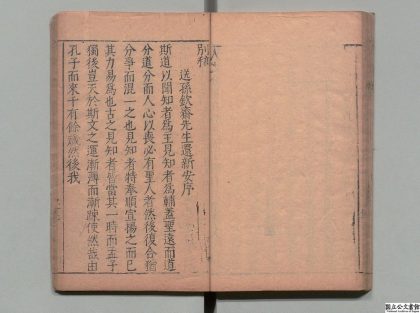 別稿
送孫欽齋先生還新安序
斯道以開知者為主見知者為輔蓋聖遠而道
分道分而人心以喪必有聖人者然後復合猶
分爭而混一之也見知者特奉順宣揚之而已
其力易為也古之見知者皆當其一時而孟子
獨後豈天於斯文之運漸濟而漸踈使然哉由
孔子而來千有餘歲然後我
國立公文書館